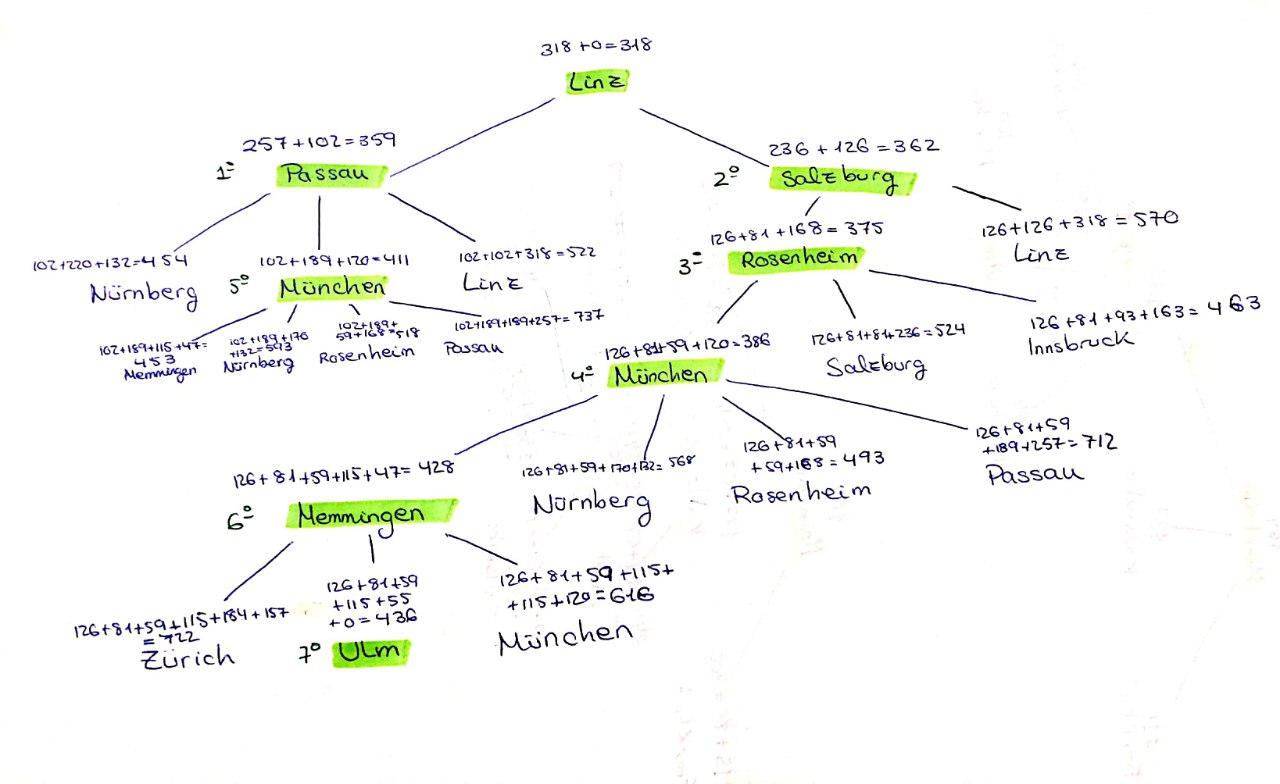 318 + 0 = 318
Linz
257 + 102 = 359
1º Passau
236 + 126 = 362
2º Salzburg
102+220+132=454
Nürnberg
102+189+120=411
5º München
102+102+318=522
Linz
126+81+168=375
3º Rosenheim
126+126+318=570
Linz
102+189+115+47=
453
Memmingen
102+189+170
+132=593
Nürnberg
102+189+
59+168=518
Rosenheim
102+189+189+257=737
Passau
126+81+59+120=386
4º München
126+81+81+236=524
Salzburg
126+81+93+163=463
Innsbruck
126+81+59+115+47=428
6º Memmingen
126+81+59+170+132=568
Nürnberg
126+81+59
+59+168=493
Rosenheim
126+81+59
+189+257=712
Passau
126+81+59+115+184+157
=722
Zürich
126+81+59
+115+55
+0=436
7º Ulm
126+81+59+115+
+115+120=616
München